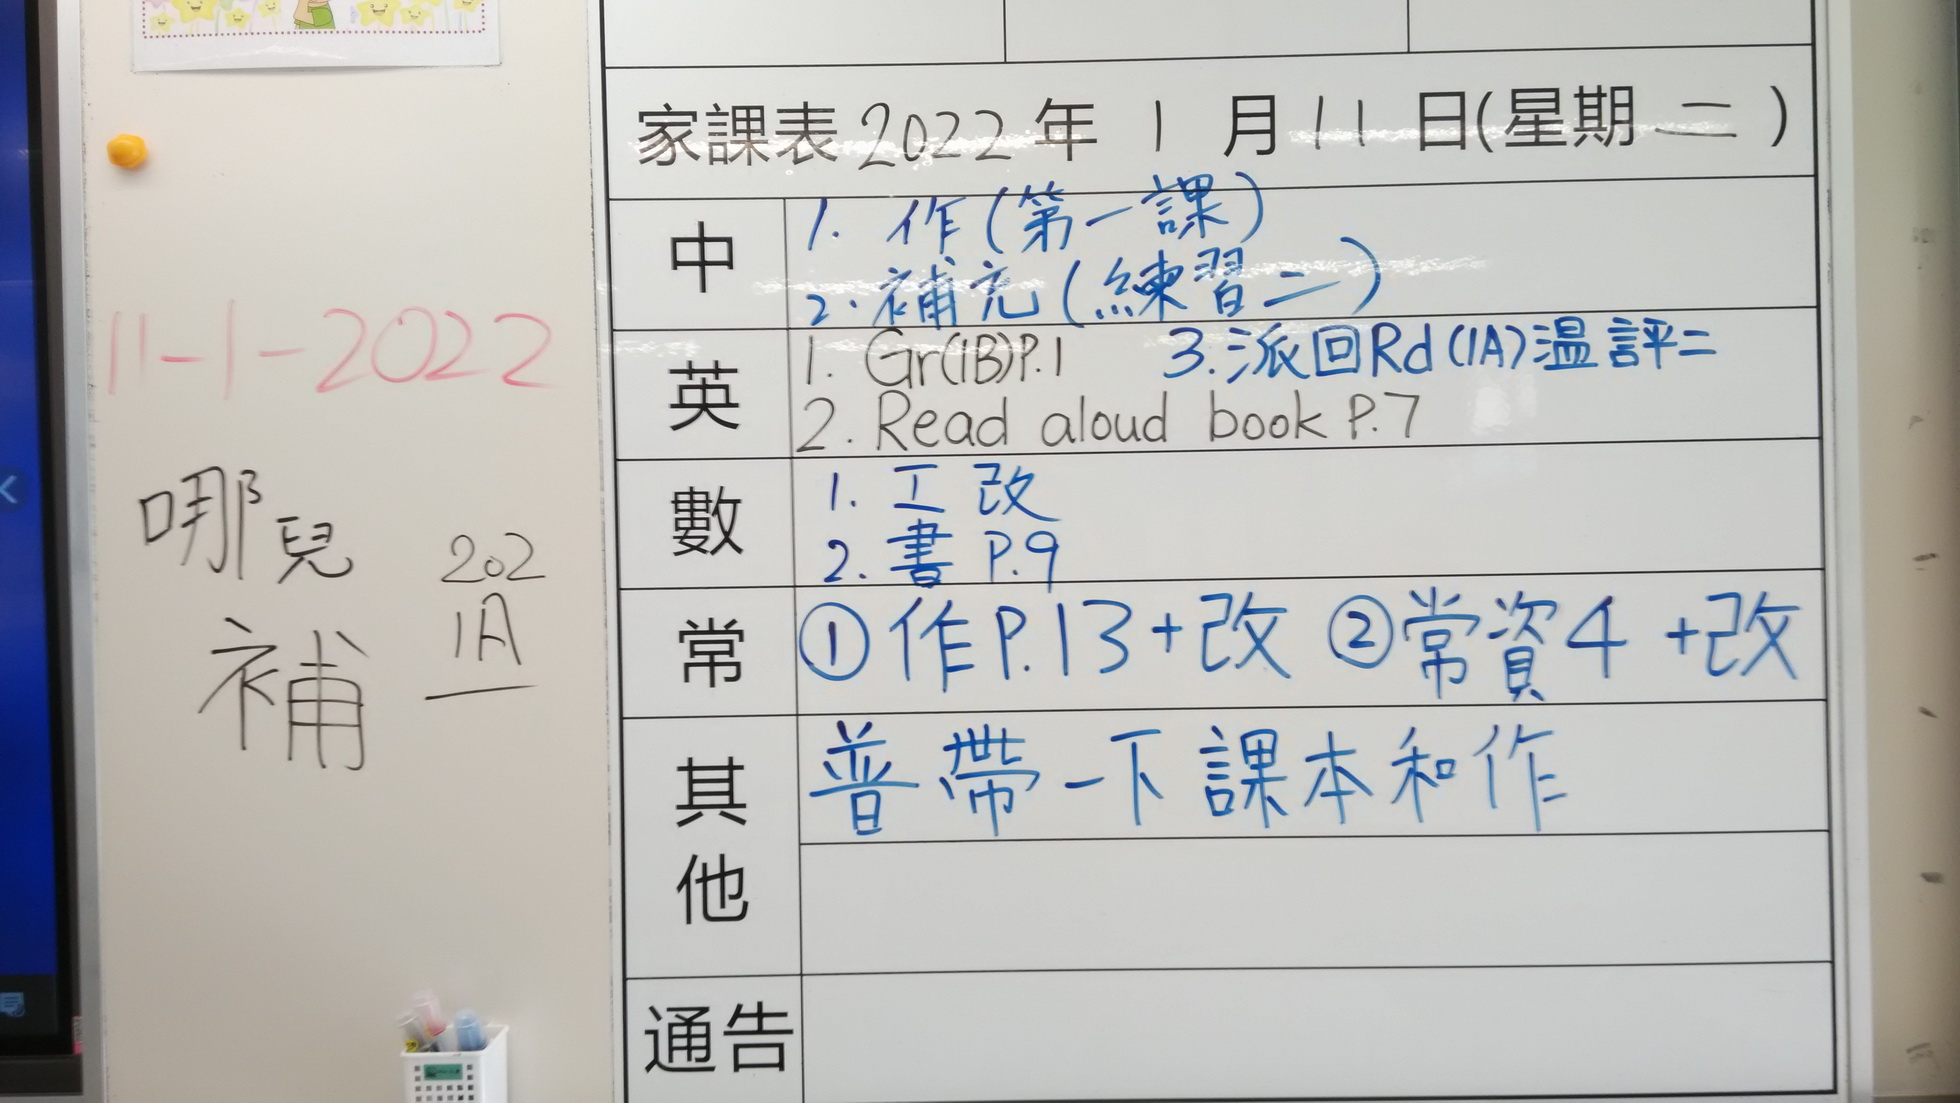 家課表2022年 1 月 11 日(星期 二 )
中
1. 作(第一課)
2. 補充(練習二)
英
1. Gr(1B)P.1 3.派回Rd(1A)温評二
2. Read aloud book P.7
數
1. 工改
2. 書 P.9
常
①作P.13+改 ②常資4 +改
其他
普帶一下課本和作
通告
11-1-2022
哪兒
補
202
1A